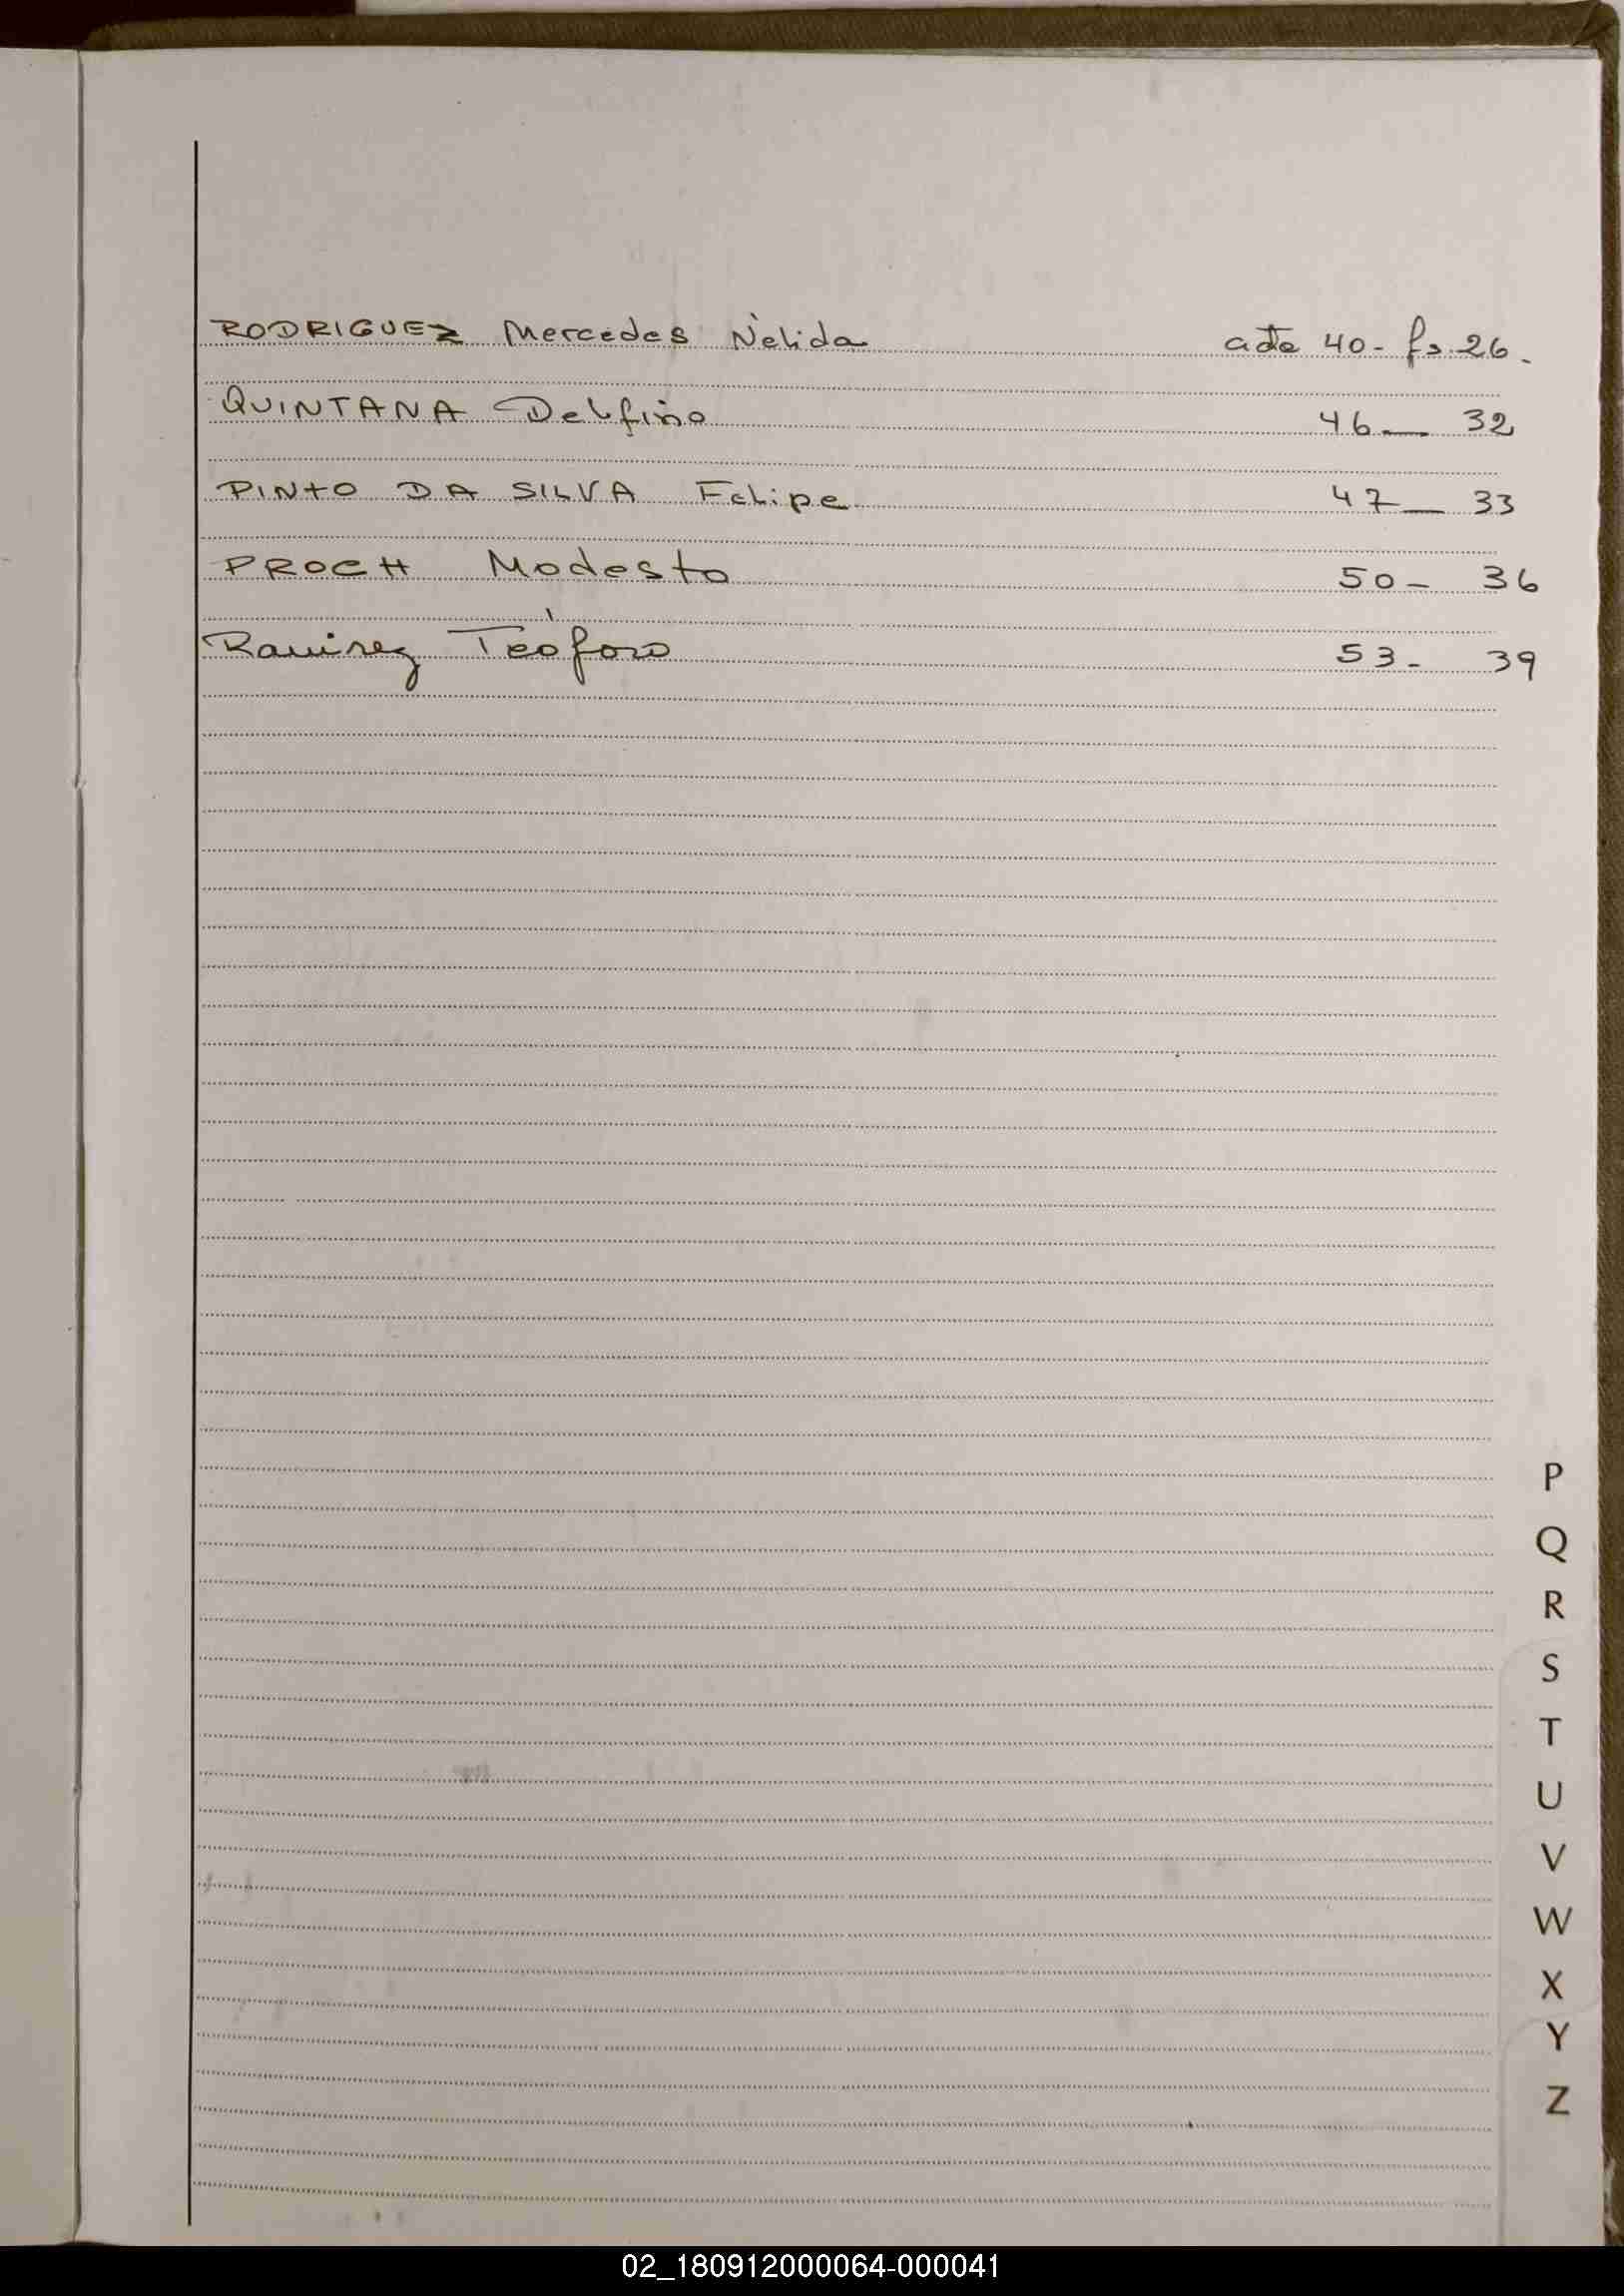 RODRIGUEZ Mercedes Nélida acta 40- fs. 26.
QUINTANA Delfino 46— 32
PINTO DA SILVA Felipe 47— 33
PROCH Modesto 50- 36
Ramirez Teóforo 53- 39
P
Q
R
S
T
U
V
W
X
Y
Z
02_180912000064-000041